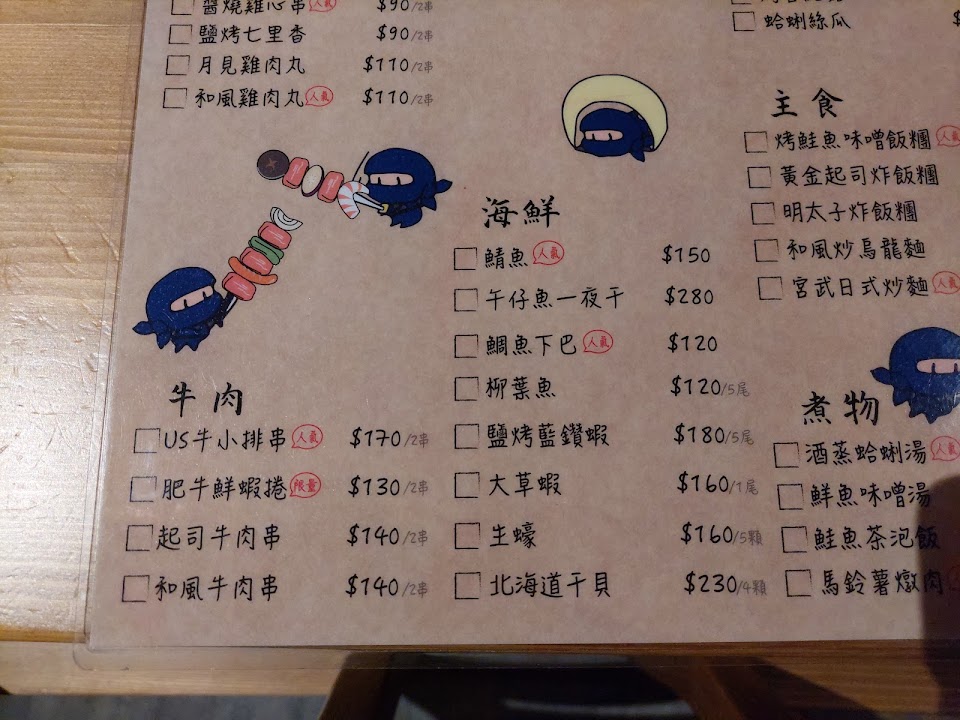 醬燒雞心串 人氣 $90/2串
鹽烤七里香 $90/2串
月見雞肉丸 $110/2串
和風雞肉丸 人氣 $110/2串
牛肉
US牛小排串 人氣 $170/2串
肥牛鮮蝦捲 限量 $130/2串
起司牛肉串 $140/2串
和風牛肉串 $140/2串
海鮮
鯖魚 人氣 $150
午仔魚一夜干 $280
鯛魚下巴 人氣 $120
柳葉魚 $120/5尾
鹽烤藍鑽蝦 $180/5尾
大草蝦 $160/1尾
生蠔 $160/5顆
北海道干貝 $230/4顆
蛤蜊絲瓜
主食
烤鮭魚味噌飯糰 人氣
黃金起司炸飯糰
明太子炸飯糰
和風炒烏龍麵
宮武日式炒麵 人氣
煮物
酒蒸蛤蜊湯 人氣
鮮魚味噌湯
鮭魚茶泡飯
馬鈴薯燉肉